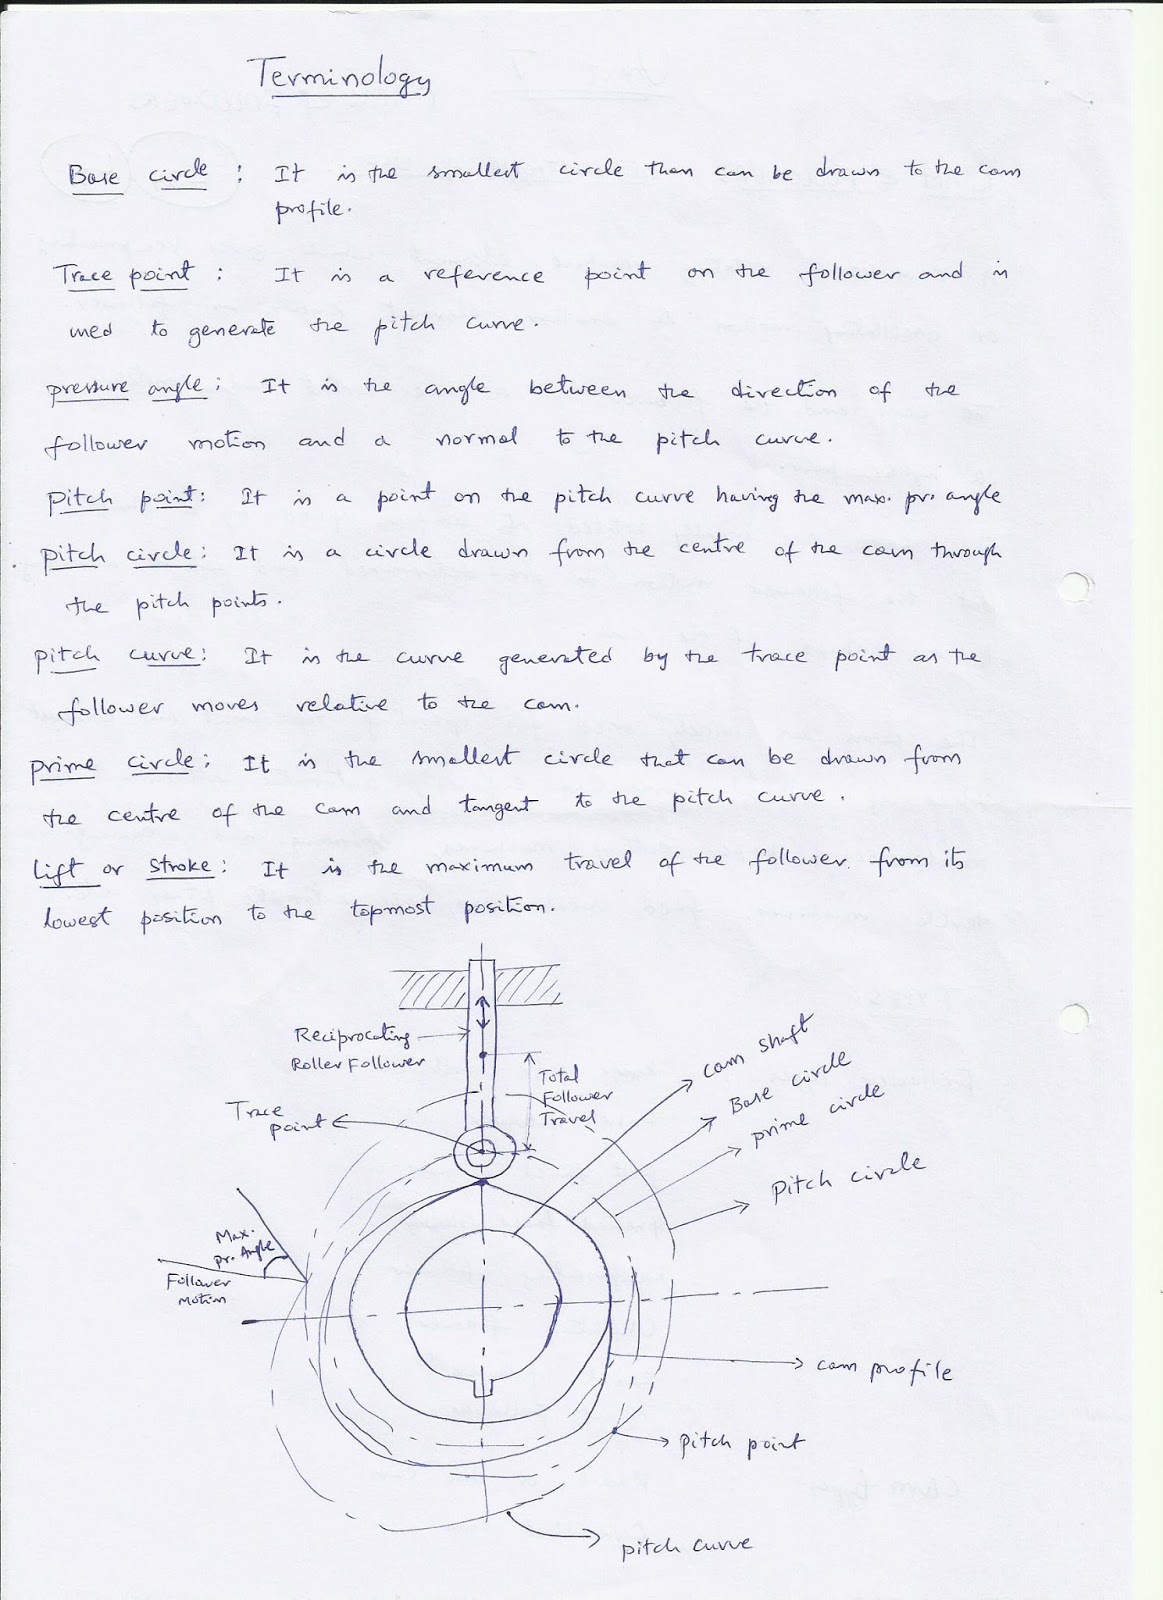 Terminology
Base circle : It is the smallest circle than can be drawn to the cam
profile.
Trace point : It is a reference point on the follower and is
used to generate the pitch curve.
pressure angle : It is the angle between the direction of the
follower motion and a normal to the pitch curve.
Pitch point : It is a point on the pitch curve having the max. pr. angle
pitch circle : It is a circle drawn from the centre of the cam through
the pitch points.
pitch curve : It is the curve generated by the trace point as the
follower moves relative to the cam.
prime circle : It is the smallest circle that can be drawn from
the centre of the cam and tangent to the pitch curve.
Lift or stroke : It is the maximum travel of the follower. from its
lowest position to the topmost position.
Reciprocating
Roller Follower
Total
Follower
Travel
Trace
point
cam shaft
Base circle
prime circle
Pitch circle
Max.
pr. Angle
Follower
motion
cam profile
pitch point
pitch curve